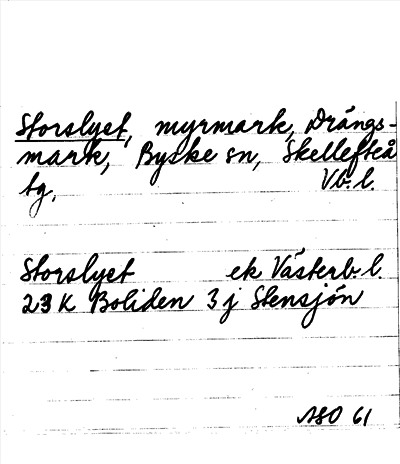 Storslyet, myrmark, Drängs-
mark, Byske sn, Skellefteå
tg, Vb. l.
Storslyet ek Västerb. l.
23 K Boliden 3 j Stensjön
ASO 61